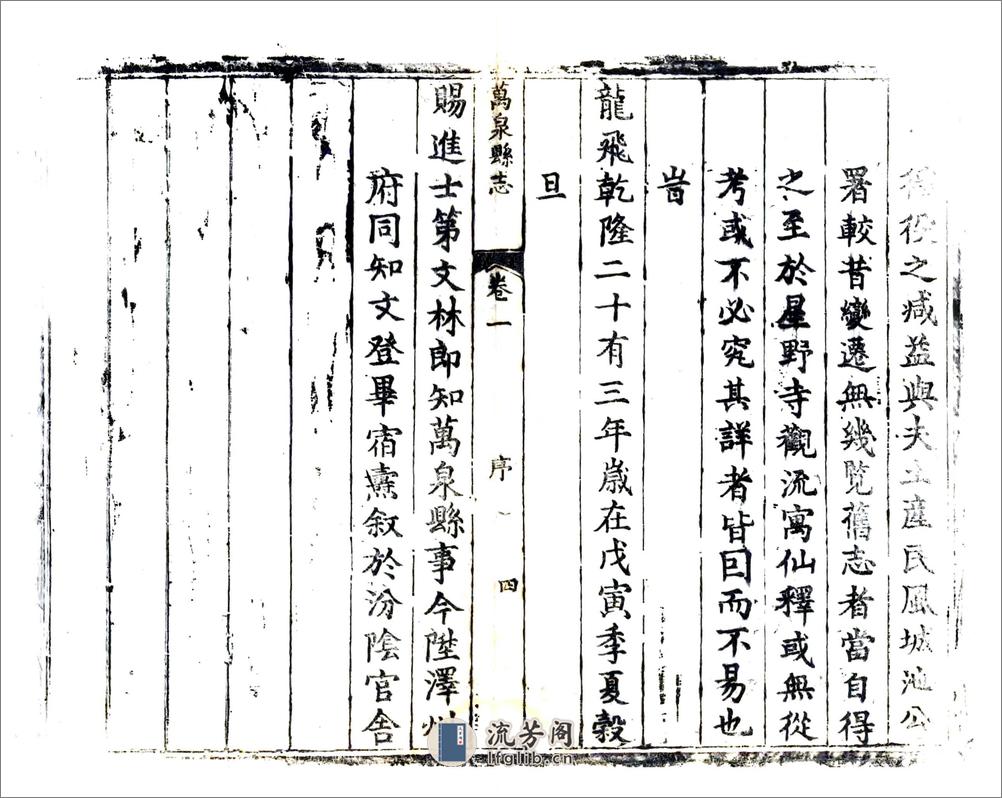 徭役之減益與夫土產民風城池公
署較昔變遷無幾覽舊志者當自得
之至於星野寺觀流寓仙釋或無從
考或不必究其詳者皆因而不易也
旹
龍飛乾隆二十有三年歲在戊寅季夏穀
旦
萬泉縣志 卷一 序 四
賜進士第文林郎知萬泉縣事今陞澤州
府同知文登畢宿燾叙於汾陰官舍
流芳阁
lfglib.cn